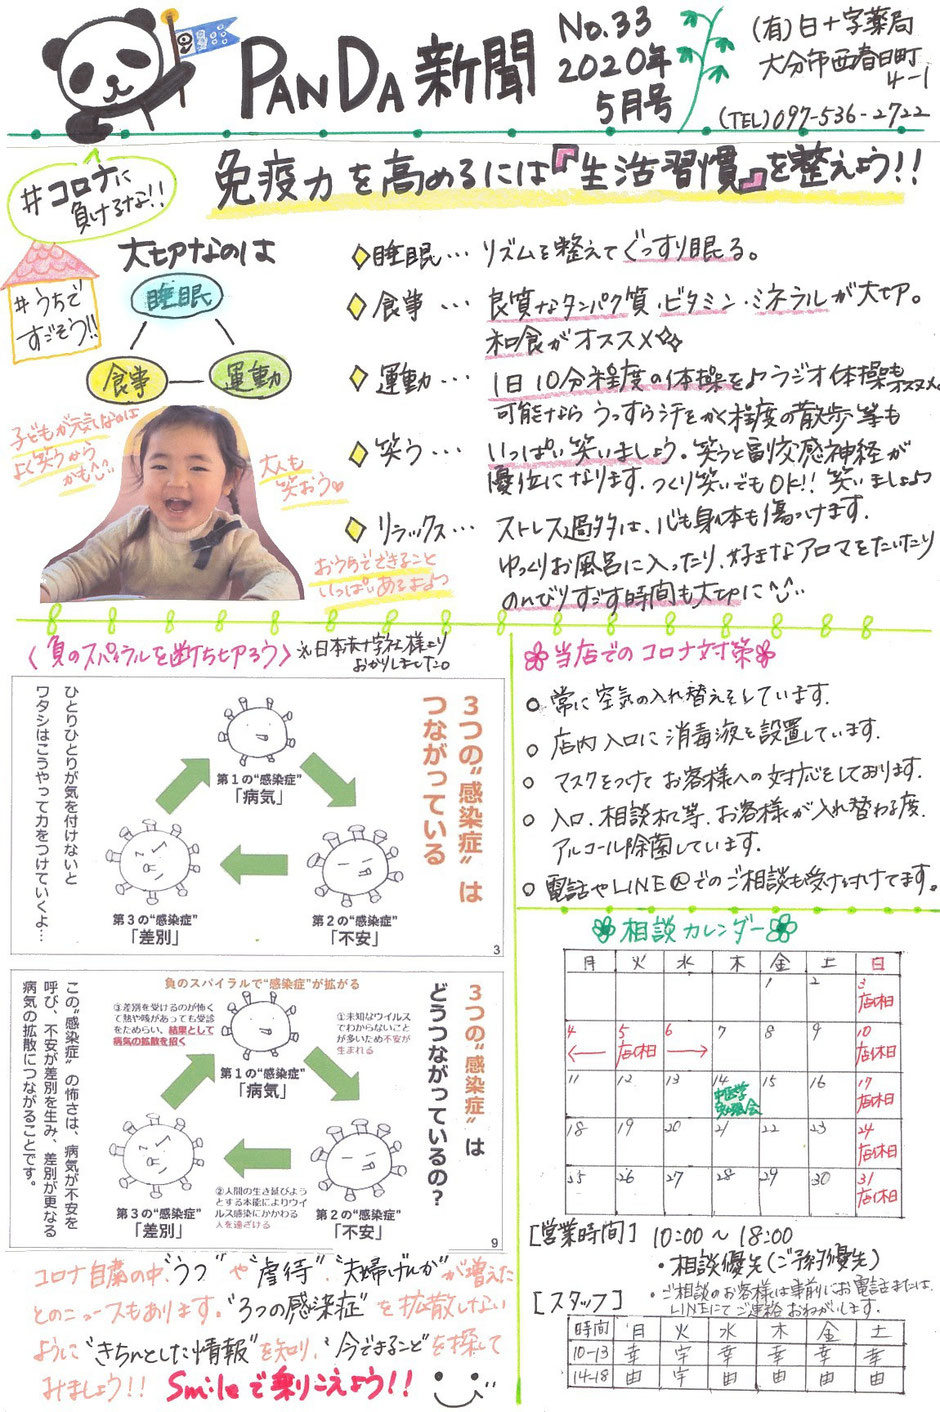 PANDA新聞
No.33
2020年
5月号
(有)日十字薬局
大分市西春日町
4-1
(TEL)097-536-2722
#コロナに
負けるな!!
免疫力を高めるには『生活習慣』を整えよう!!
#うちで
すごそう!!
大切なのは
睡眠
食事
運動
子どもが元気なのは
よく笑うから
かも^^
大人も
笑おう♡
◇睡眠… リズムを整えてぐっすり眠る。
◇食事… 良質なタンパク質・ビタミン・ミネラルが大切。
和食がオススメ
◇運動… 1日10分程度の体操を♪ラジオ体操もオススメ
可能なら うっすら汗をかく程度の散歩等も
◇笑う… いっぱい笑いましょう。笑うと副交感神経が
優位になります。つくり笑いでもOK!! 笑いましょっ
◇リラックス… ストレス過多は、心も身体も傷つけます。
ゆっくりお風呂に入ったり、好きなアロマをたいたり
のんびりすごす時間も大切に
おうちでできること
いっぱいあるよっ
〈負のスパイラルを断ち切ろう〉
※日本赤十字社様より
おかりしました。
3つの“感染症”は
つながっている
第1の“感染症”
「病気」
第2の“感染症”
「不安」
第3の“感染症”
「差別」
ひとりひとりが気を付けないと
ワタシはこうやって力をつけていくよ…
3
3つの“感染症”は
どうつながっているの？
負のスパイラルで“感染症”が拡がる
①未知なウイルス
でわからないこと
が多いため不安が
生まれる
③差別を受けるのが怖く
て熱や咳があっても受診
をためらい、結果として
病気の拡散を招く
第1の“感染症”
「病気」
②人間の生き延びよう
とする本能によりウイ
ルス感染にかかわる
人を遠ざける
第2の“感染症”
「不安」
第3の“感染症”
「差別」
この“感染症”の怖さは、病気が不安を
呼び、不安が差別を生み、差別が更なる
病気の拡散につながることです。
9
コロナ自粛の中、“うつ”や“虐待”、“夫婦げんか”が増えた
とのニュースもあります。“3つの感染症”を拡散しない
ように“きちんとした情報”を知り、“今できること”を探して
みましょう!! Smileで乗りこえよう!!
当店でのコロナ対策
○常に空気の入れ替えをしています。
○店内入口に消毒液を設置しています。
○マスクをつけてお客様への対応をしております。
○入口、相談机等、お客様が入れ替わる度、
アルコール除菌しています。
○電話やLINE@でのご相談も受け付けてます。
相談カレンダー
月 火 水 木 金 土 日
1 2 3 店休日
4 5 6 7 8 9 10 店休日
店休日
11 12 13 14 15 16 17 店休日
中医学
勉強会
18 19 20 21 22 23 24 店休日
25 26 27 28 29 30 31 店休日
[営業時間] 10:00〜18:00
・相談優先(ご予約優先)
・ご相談のお客様は事前にお電話または、
LINEにてご連絡おねがいします。
[スタッフ]
時間 月 火 水 木 金 土
10-13 幸 宇 幸 幸 幸 幸
14-18 由 宇 由 由 由 由